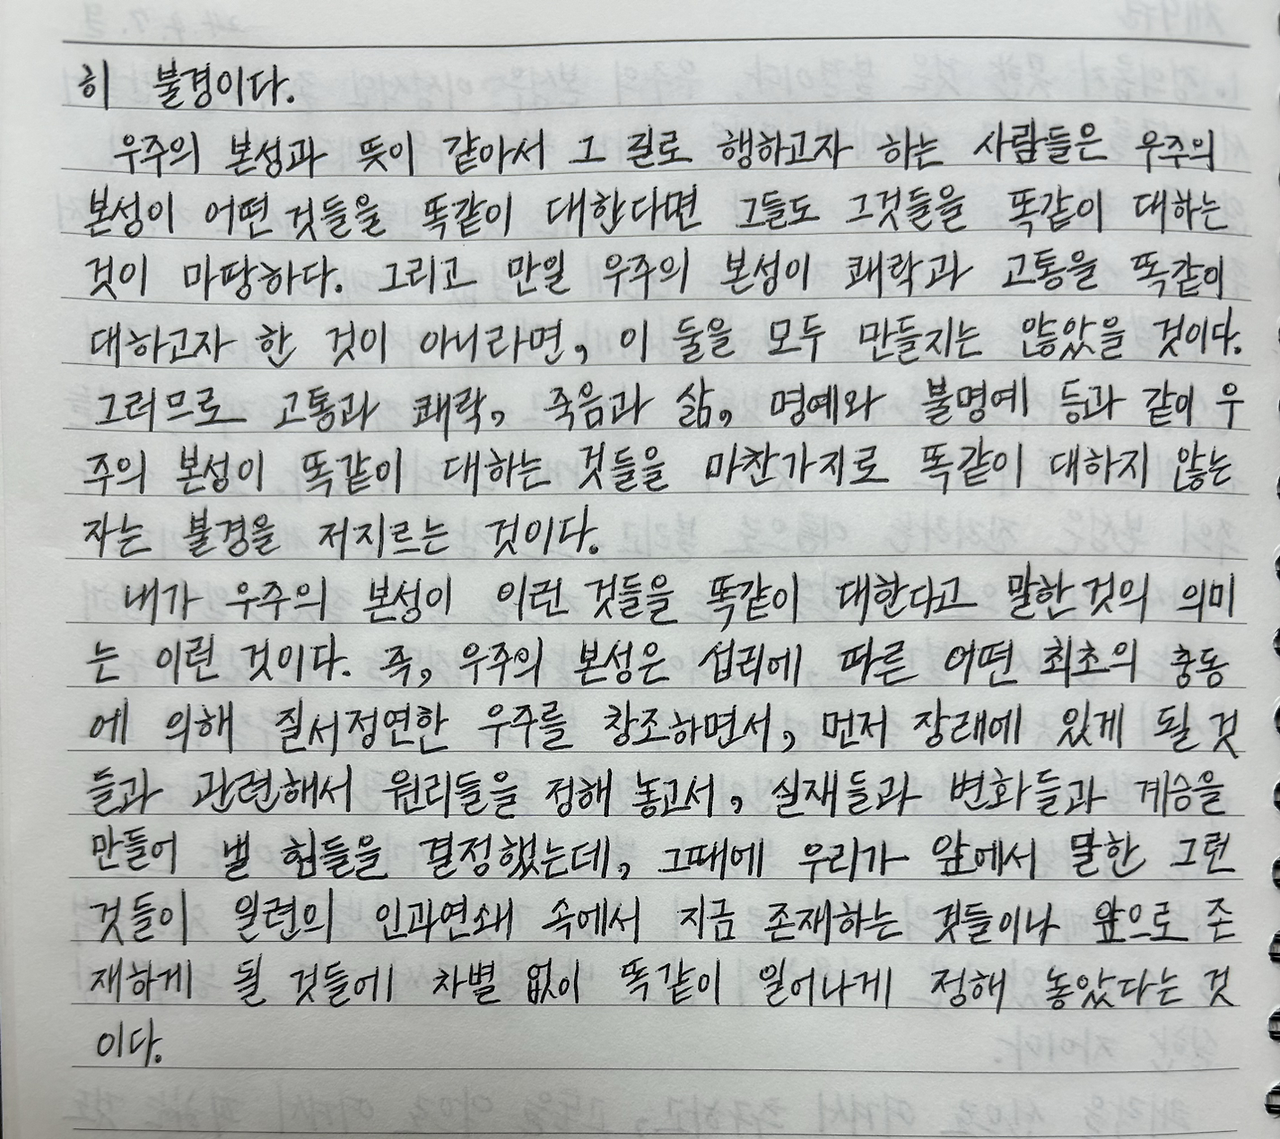 히 불경이다.
우주의 본성과 뜻이 같아서 그 길로 행하고자 하는 사람들은 우주의
본성이 어떤 것들을 똑같이 대한다면 그들도 그것들을 똑같이 대하는
것이 마땅하다. 그리고 만일 우주의 본성이 쾌락과 고통을 똑같이
대하고자 한 것이 아니라면, 이 둘을 모두 만들지는 않았을 것이다.
그러므로 고통과 쾌락, 죽음과 삶, 명예와 불명예 등과 같이 우
주의 본성이 똑같이 대하는 것들을 마찬가지로 똑같이 대하지 않는
자는 불경을 저지르는 것이다.
내가 우주의 본성이 이런 것들을 똑같이 대한다고 말한 것의 의미
는 이런 것이다. 즉, 우주의 본성은 섭리에 따른 어떤 최초의 충동
에 의해 질서정연한 우주를 창조하면서, 먼저 장래에 있게 될 것
들과 관련해서 원리들을 정해 놓고서, 실재들과 변화들과 계승을
만들어 낼 힘들을 결정했는데, 그때에 우리가 앞에서 말한 그런
것들이 일련의 인과연쇄 속에서 지금 존재하는 것들이나 앞으로 존
재하게 될 것들에 차별 없이 똑같이 일어나게 정해 놓았다는 것
이다.